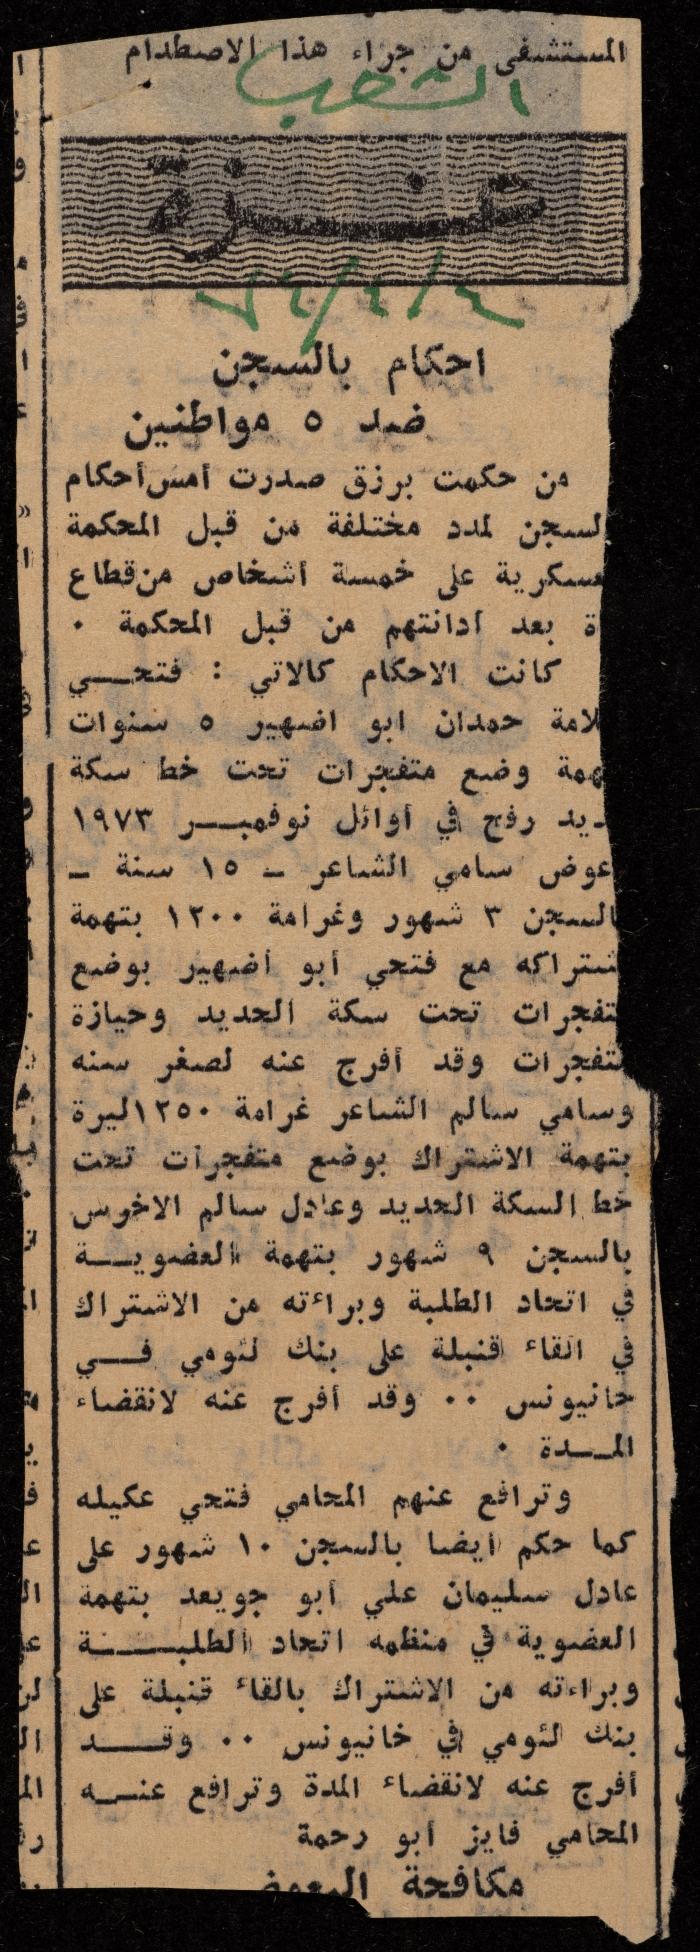 المستشفى من جراء هذا الاصطدام
الشعب
غزة
٧٤/٤/٤
احكام بالسجن
ضد ٥ مواطنين
من حكمت برزق صدرت أمس أحكام
لسجن لمدد مختلفة من قبل المحكمة
عسكرية على خمسة أشخاص من قطاع
ة بعد ادانتهم من قبل المحكمة ٠
كانت الاحكام كالاتي : فتحـــي
لامة حمدان ابو اضهير ٥ سنوات
همة وضع متفجرات تحت خط سكة
ديد رفح في أوائل نوفمبـــر ١٩٧٣
عوض سامي الشاعر ـ ١٥ سنة ـ
السجن ٣ شهور وغرامة ١٢٠٠ بتهمة
شتراكه مع فتحي أبو أضهير بوضع
تفجرات تحت سكة الحديد وحيازة
تفجرات وقد أفرج عنه لصغر سنه
وسامي سالم الشاعر غرامة ١٢٥٠ ليرة
بتهمة الاشتراك بوضع متفجرات تحت
خط السكة الحديد وعادل سالم الاخرس
بالسجن ٩ شهور بتهمة العضويـــة
في اتحاد الطلبة وبراءته من الاشتراك
في القاء قنبلة على بنك لئومي فـــي
خانيونس ٠٠ وقد أفرج عنه لانقضاء
المـــدة ٠
وترافع عنهم المحامي فتحي عكيله
كما حكم أيضا بالسجن ١٠ شهور على
عادل سليمان علي أبو جويعد بتهمة
العضوية في منظمه اتحاد الطلبـــــة
وبراءته من الاشتراك بالقاء قنبلة على
بنك لئومي في خانيونس ٠٠ وقـــد
أفرج عنه لانقضاء المدة وترافع عنـــه
المحامي فايز أبو رحمة
مكافحة البعوض